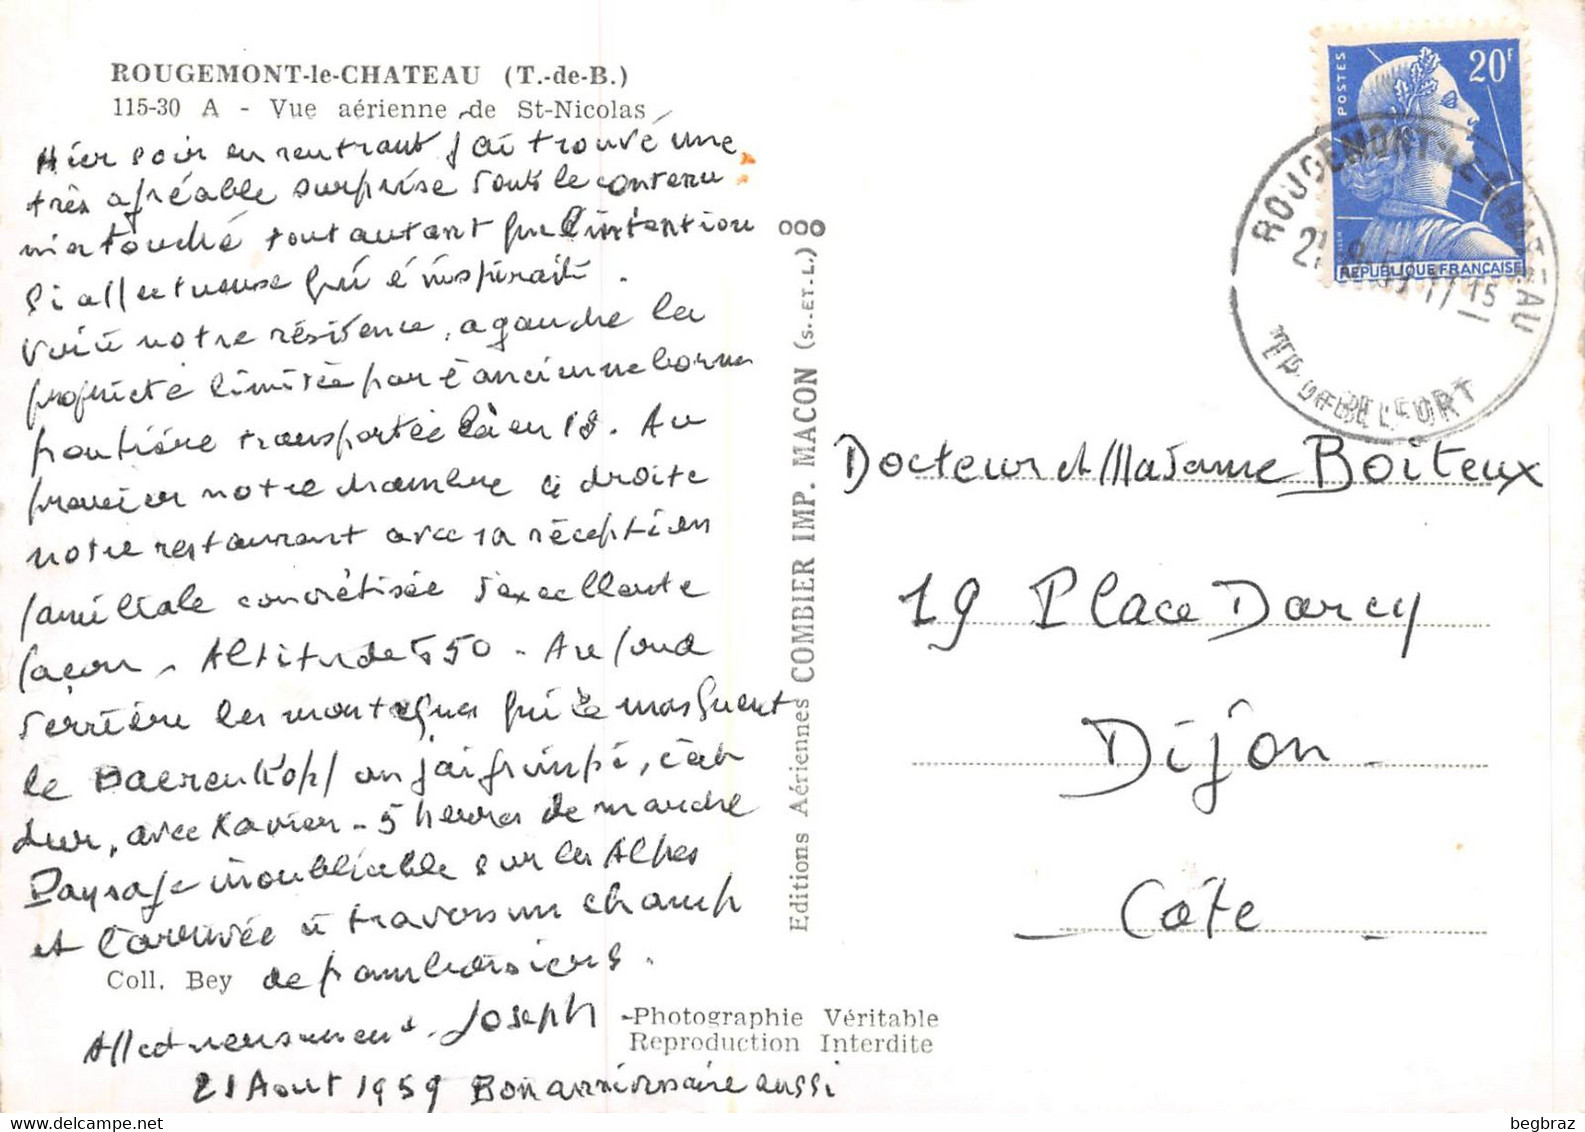 ROUGEMONT-le-CHATEAU (T.-de-B.)
115-30 A - Vue aérienne de St-Nicolas
Hier soir en rentrant j'ai trouvé une
très agréable surprise dont le contenu
m'a touché tout autant que l'intention
si affectueuse qui l'inspirait.
Voici notre résidence, a gauche la
propriété limitée par l'ancienne borne
frontière transportée là en 18. Au
premier notre chambre à droite
notre restaurant avec sa réception
familiale concrétisée d'excellente
façon - Altitude 550 - Au fond
derrière les montagnes qui le masquent
le Baerenkopf où j'ai grimpé, c'est
dur, avec Xavier - 5 heures de marche
Paysage inoubliable sur les Alpes
et l'arrivée à travers un champ
de framboisiers.
Coll. Bey
Affectueusement. Joseph
21 Aout 1959 Bon anniversaire aussi
-Photographie Véritable
Reproduction Interdite
Editions Aériennes COMBIER IMP. MACON (S.-ET-L.)
20F
POSTES
REPUBLIQUE FRANÇAISE
ROUGEMONT-LE-CHATEAU
17 15
BELFORT
Docteur et Madame Boiteux
19 Place Darcy
Dijon -
- Côte -
begbraz